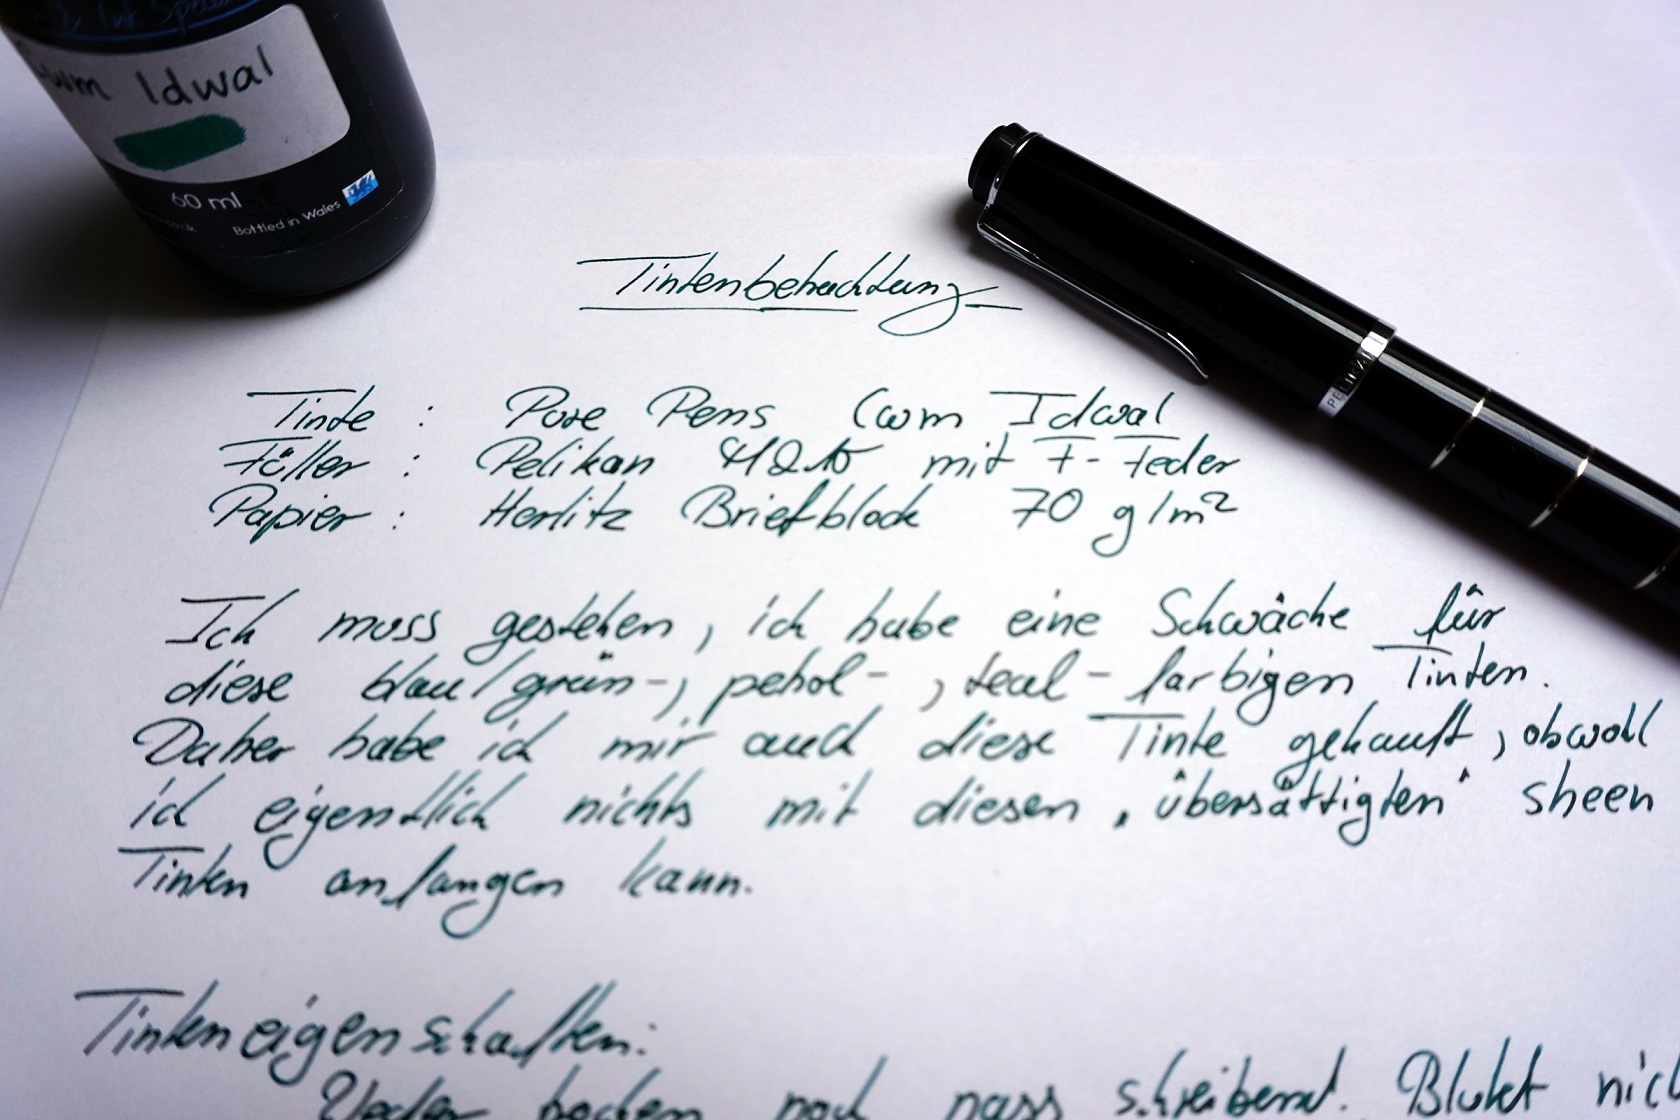 Idwal
60 ml
Bottled in Wales
PELIKAN
Tintenbetrachtung
Tinte : Pure Pens Cwm Idwal
Füller : Pelikan mit F-Feder
Papier : Herlitz Briefblock 70 g/m²
Ich muss gestehen, ich habe eine Schwäche für
diese blau/grün-, petrol-, teal-farbigen Tinten.
Daher habe ich mir auch diese Tinte gekauft, obwohl
ich eigentlich nichts mit diesen „übersättigten" sheen
Tinten anfangen kann.
Tinteneigenschaften:
Weder trocken noch nass schreibend. Blutet